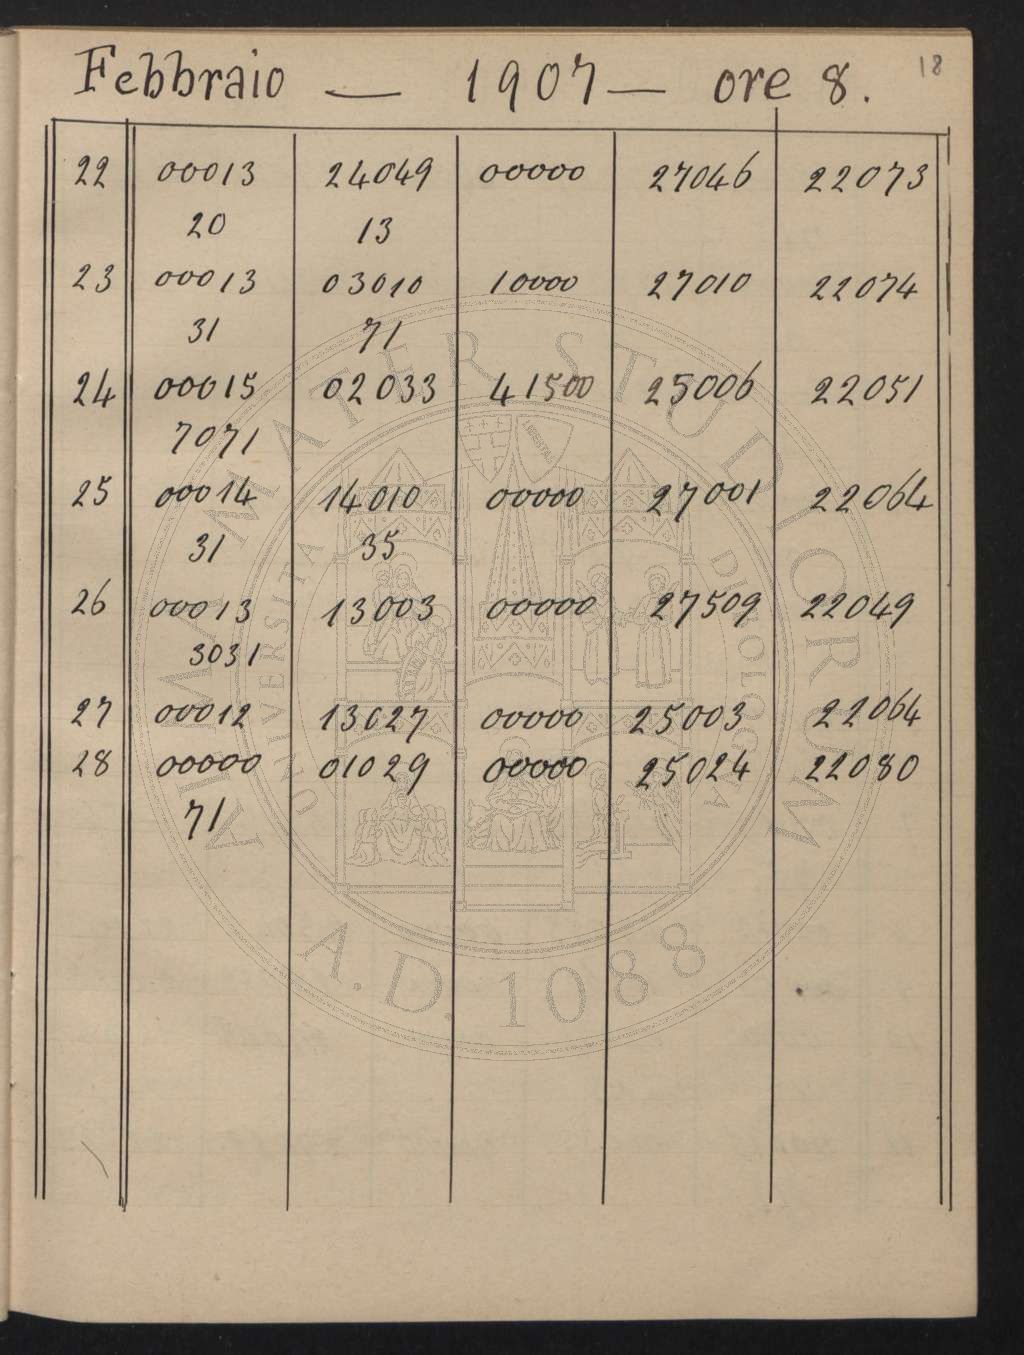 18
Febbraio — 1907 — ore 8.
22 00013 24049 00000 27046 22073
20 13
23 00013 03010 10000 27010 22074
31 71
24 00015 02033 41500 25006 22051
7071
25 00014 14010 00000 27001 22064
31 35
26 00013 13003 00000 27509 22049
3031
27 00012 13027 00000 25003 22064
28 00000 01029 00000 25024 22080
71
ALMA MATER STUDIORUM
UNIVERSITA DI BOLOGNA
A.D. 1088